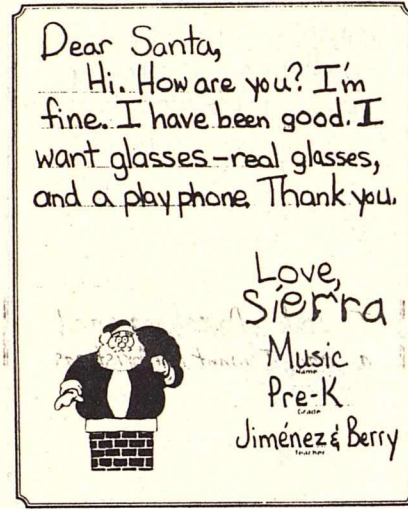 Dear Santa,
Hi. How are you? I'm
fine. I have been good. I
want glasses-real glasses,
and a play phone. Thank you.
Love,
Sierra
Music
Name
Pre-K
Grade
Jiménez & Berry
Teacher